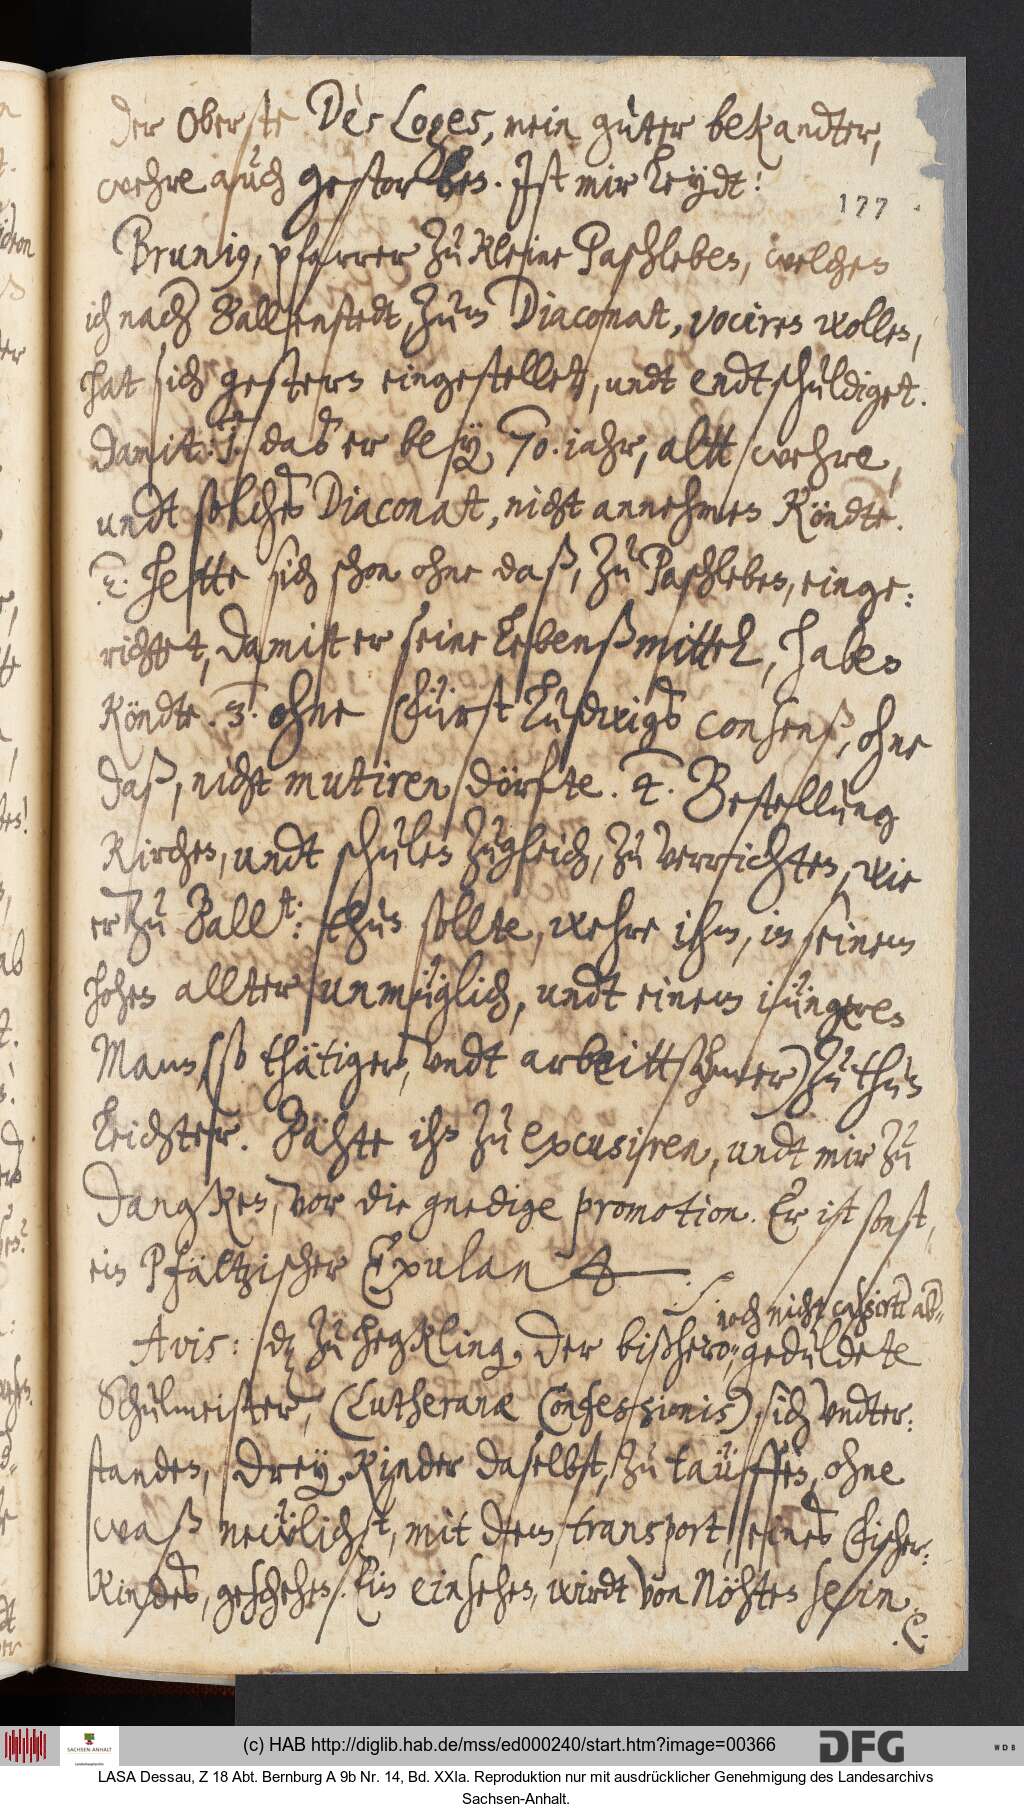 Der Oberste Des Loges, mein guter bekandter,
wehre auch gestorben. Ist mir Leydt!
177
Brunig, pfarrer zu kleine Paschleben, welchen
ich nach Ballenstedt, zum Diaconat, vociren wollen,
hat sich gestern eingestellet, undt endtschuldiget.
Damit: 1. das er bey 70. iahr, altt wehre,
undt solches Diaconat, nicht annehmen köndte.
2. Hette sich schon ohne daß, zu Paschleben, einge:
richtet, damit er seine Lebenßmittel, haben
köndte. 3. ohne Fürst Ludwigs consenß, ohne
daß, nicht mutiren dörfte. 4. Bestellung
Kirchen, undt schulen zugleich, zu verrichten, wie
er zu Ballt: thun sollte, wehre ihm, in seinem
hohen allter unmüglich, undt einem iüngeren
Mann, (so thätiger, undt arbeittsahmer) zu thun
Leichter. Bähte ihn zu excusiren, undt mir zu
Dangken, vor die gnedige promotion. Er ist sonst,
ein Pfältzischer Exulant
noch nicht cassirte ab-
Avis: dz zu Hegkling, der bißhero, geduldete
Schulmeister, (Lutheranæ Confessionis) sich undter:
standen, drey, Kinder daselbst, zu täuffen, ohne
waß neülichst, mit dem transport, eines Fischer:
Kindes, geschehen. Ein einsehen, wirdt von Nöhten sein.
(c) HAB http://diglib.hab.de/mss/ed000240/start.htm?image=00366
SACHSEN-ANHALT
DFG
WDB
LASA Dessau, Z 18 Abt. Bernburg A 9b Nr. 14, Bd. XXIa. Reproduktion nur mit ausdrücklicher Genehmigung des Landesarchivs
Sachsen-Anhalt.